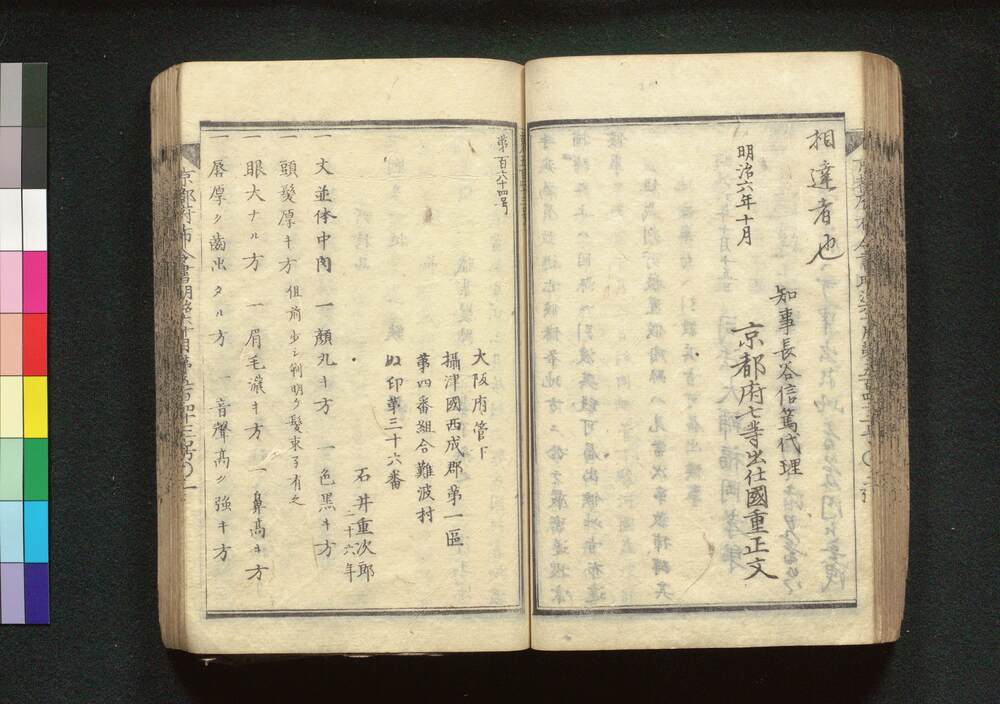 相達者也
明治六年十月
知事長谷信篤代理
京都府七等出仕國重正文
第百六十四号
大阪府管下
攝津國西成郡第一區
第四番組合難波村
ぬ印第三十六番
石井重次郎
二十六年
一 丈並体中肉 一 顔丸キ方 一 色黒キ方
一 頭髪厚キ方 但前少シ判明ク髪束子有之
一 眼大ナル方 一 眉毛濃キ方 一 鼻高キ方
一 唇厚ク歯出タル方 一 音聲高ク強キ方